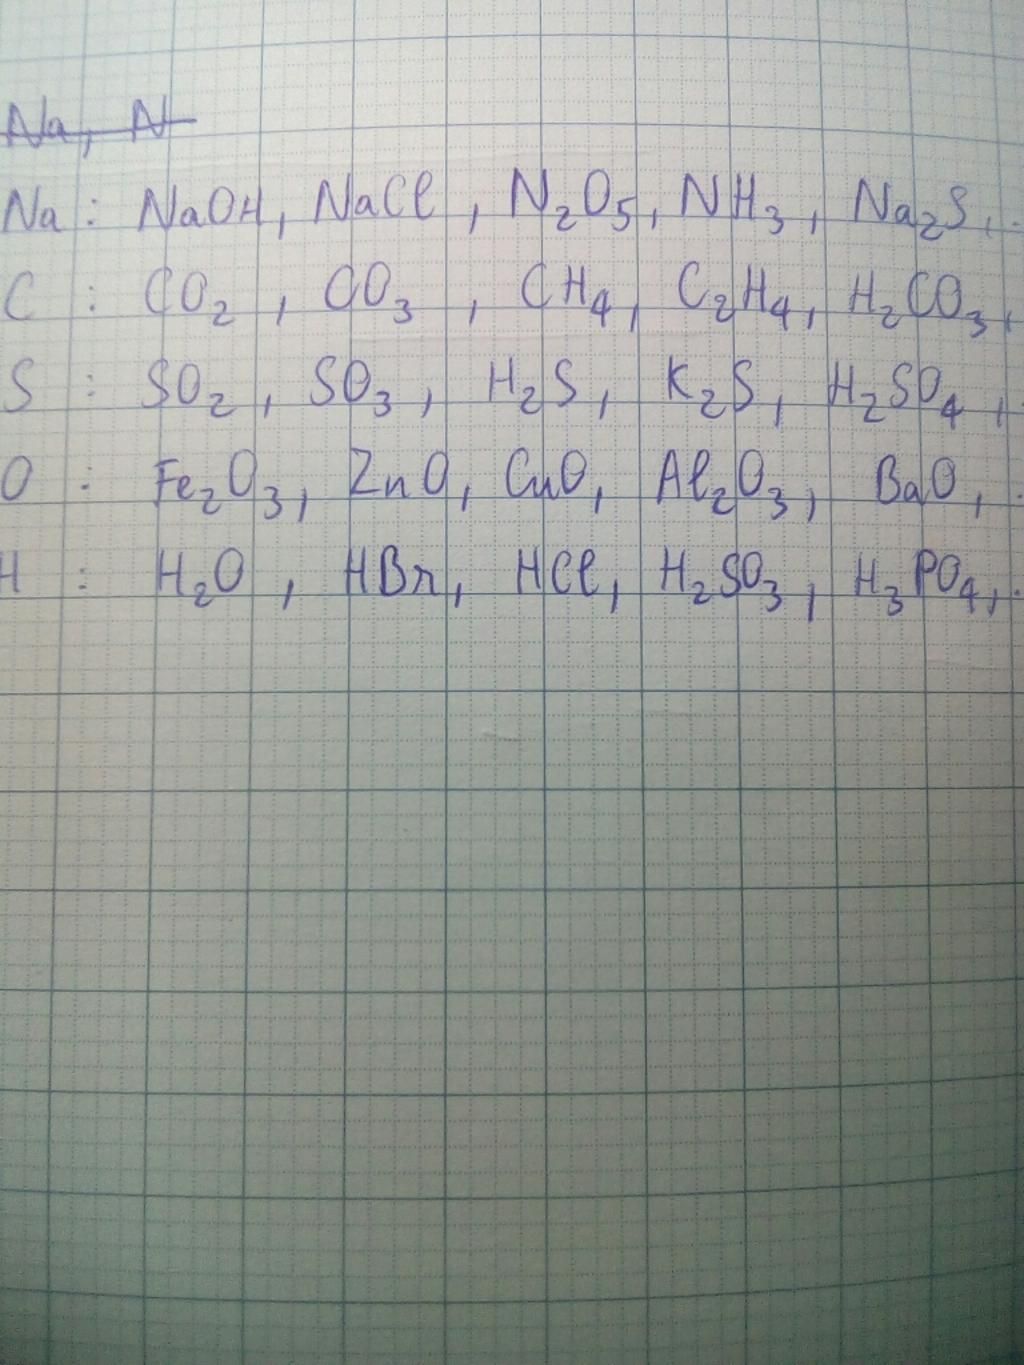 Na, N
Na : NaOH, NaCl, N₂O₅, NH₃, Na₂S, .
C : CO₂, CO₃, CH₄, C₂H₄, H₂CO₃,
S : SO₂, SO₃, H₂S, K₂S, H₂SO₄, .
O : Fe₂O₃, ZnO, CuO, Al₂O₃, BaO, .
H : H₂O, HBr, HCl, H₂SO₃, H₃PO₄, .